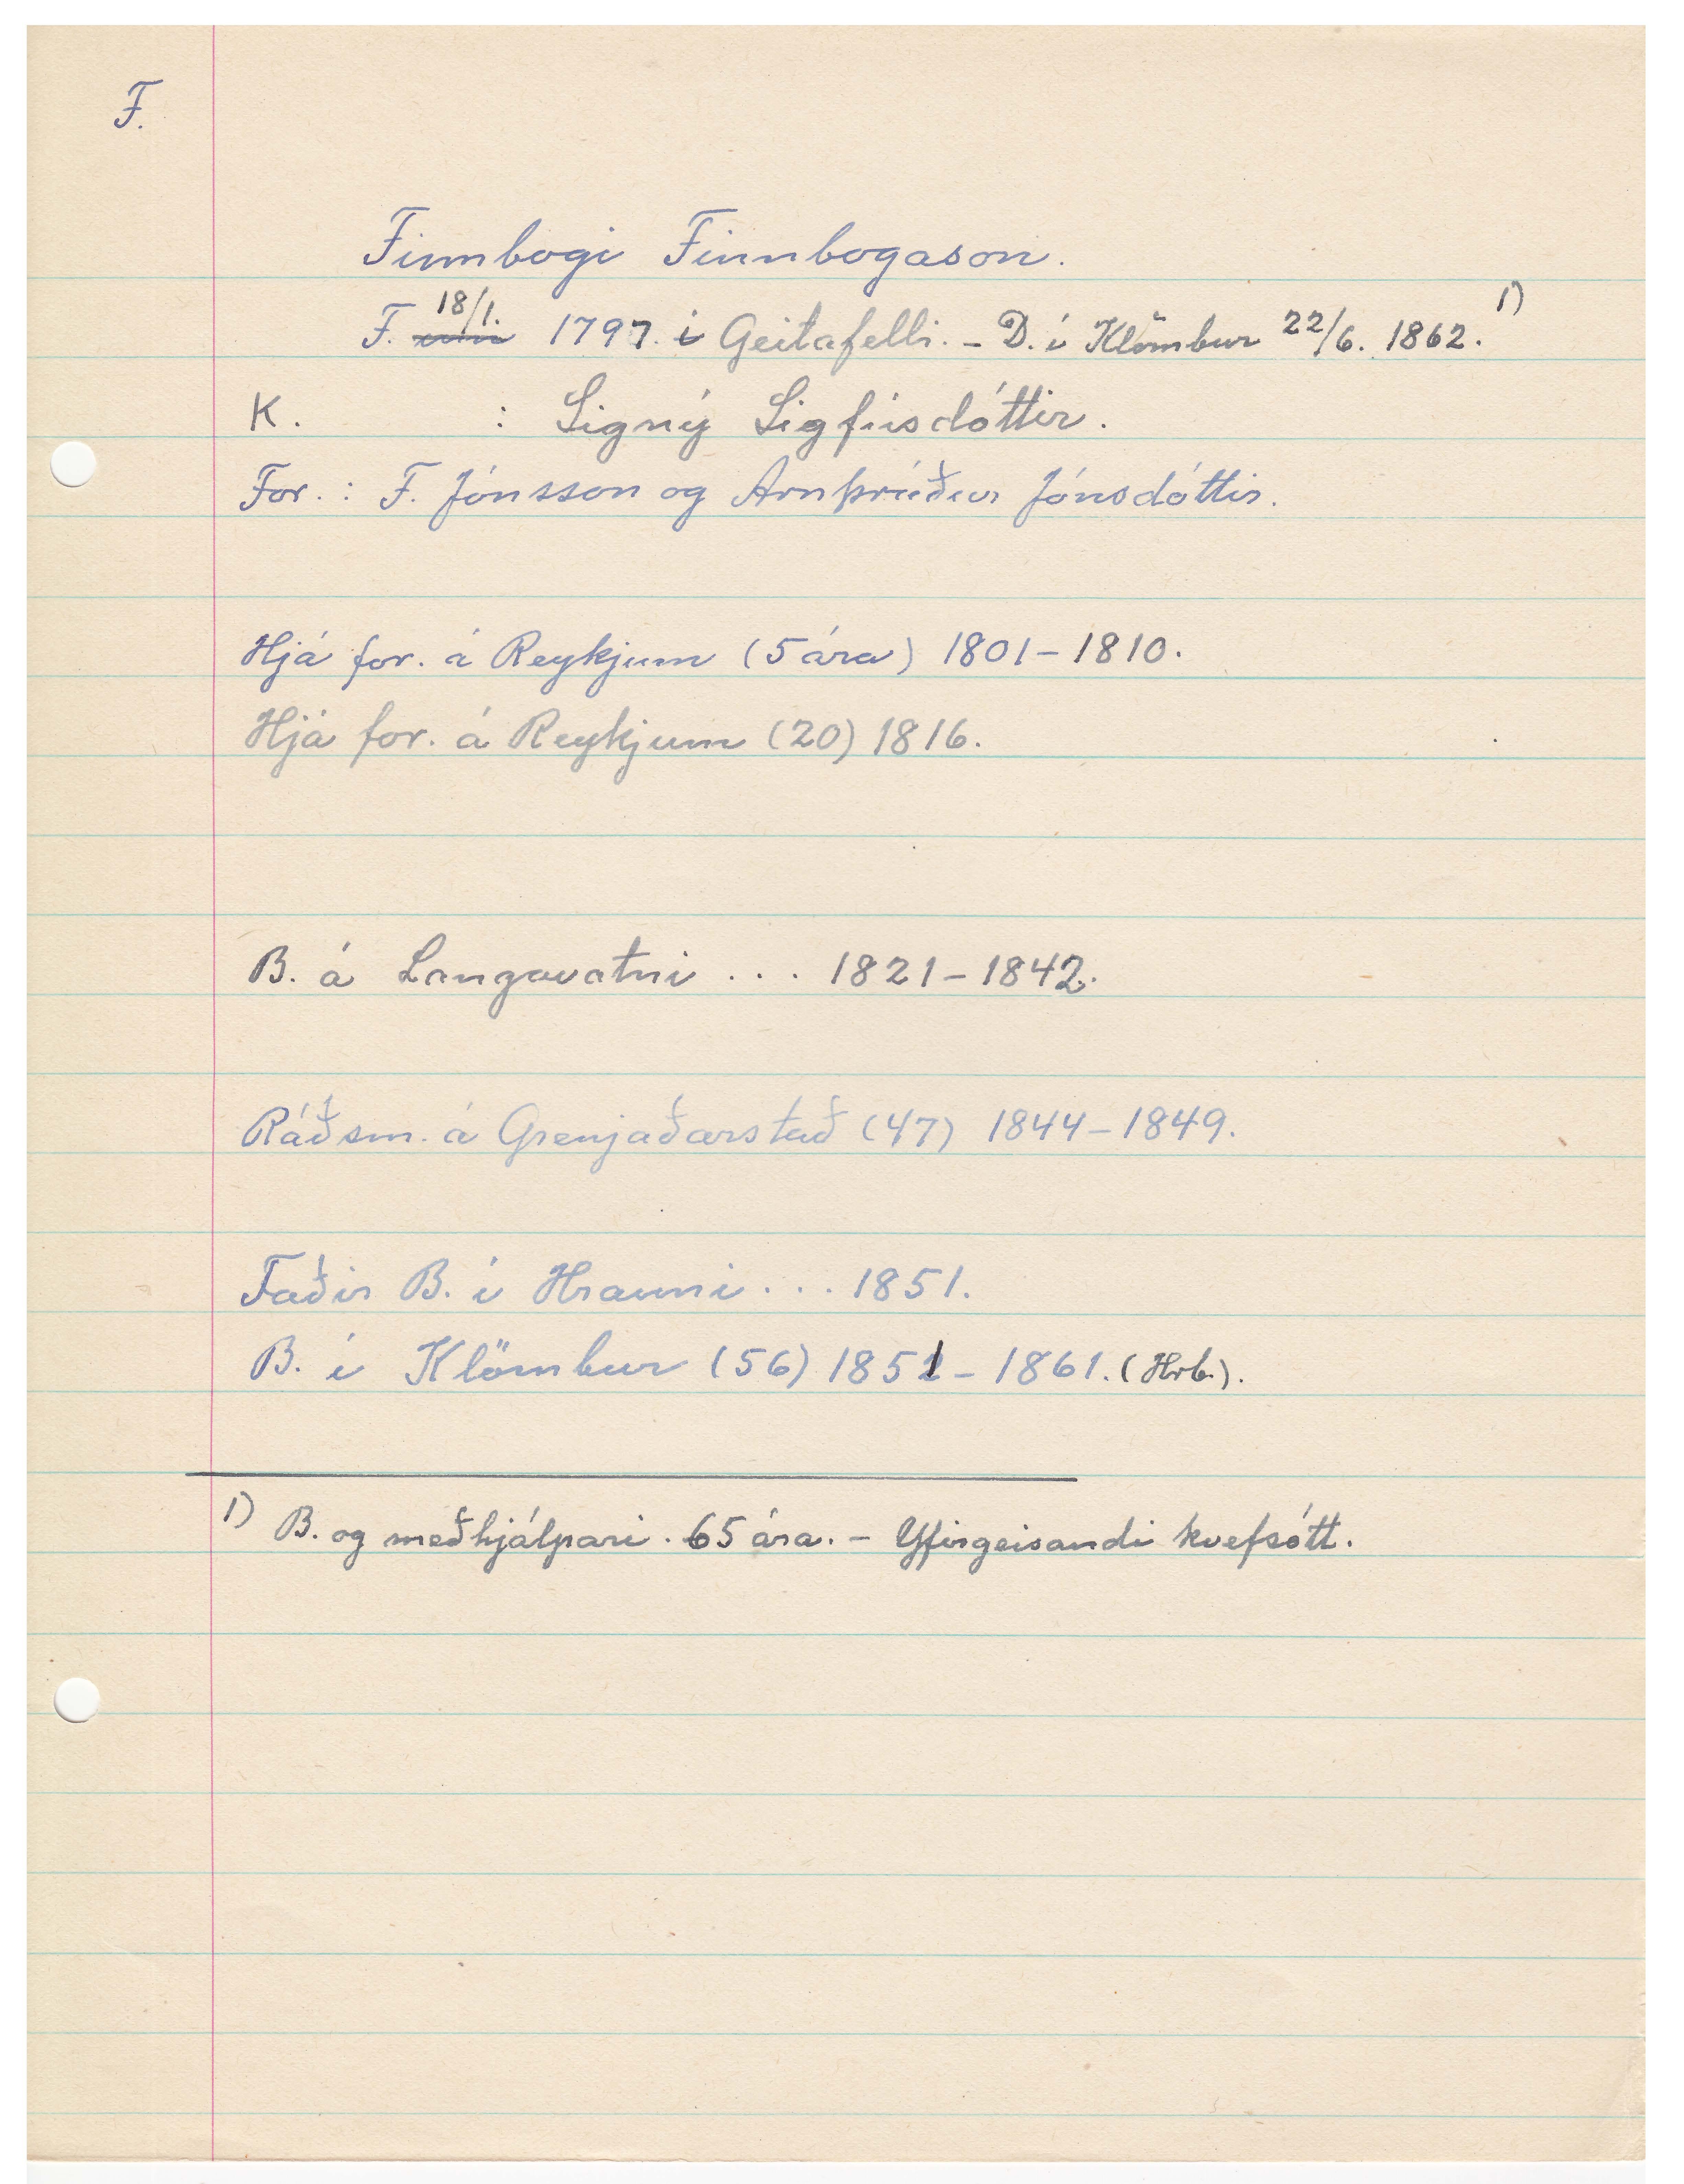 F.
Finnbogi Finnbogason.
F. 18/1. 1797. í Geitafelli. - D. í Klömbur 22/6. 1862. 1)
K. : Signý Sigfúsdóttir.
For. : F. Jónsson og Arnþrúður Jónsdóttir.
Hjá for. á Reykjum (5 ára) 1801-1810.
Hjá for. á Reykjum (20) 1816.
B. á Langavatni ... 1821-1842.
Ráðsm. á Grenjaðarstað (47) 1844-1849.
Faðir B. í Hrauni ... 1851.
B. í Klömbur (56) 1851-1861. (Hrb.).
1) B. og meðhjálpari. 65 ára. - Yfirgeisandi kvefsótt.